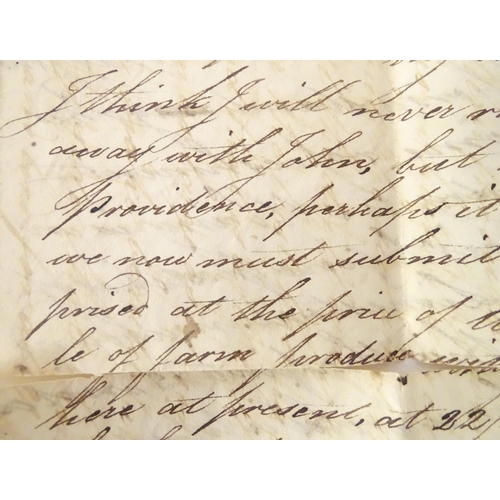 I think I will never
away with John, but
Providence, perhaps it
we now must submit
prised at the price of
le of farm produce
here at present, at 22